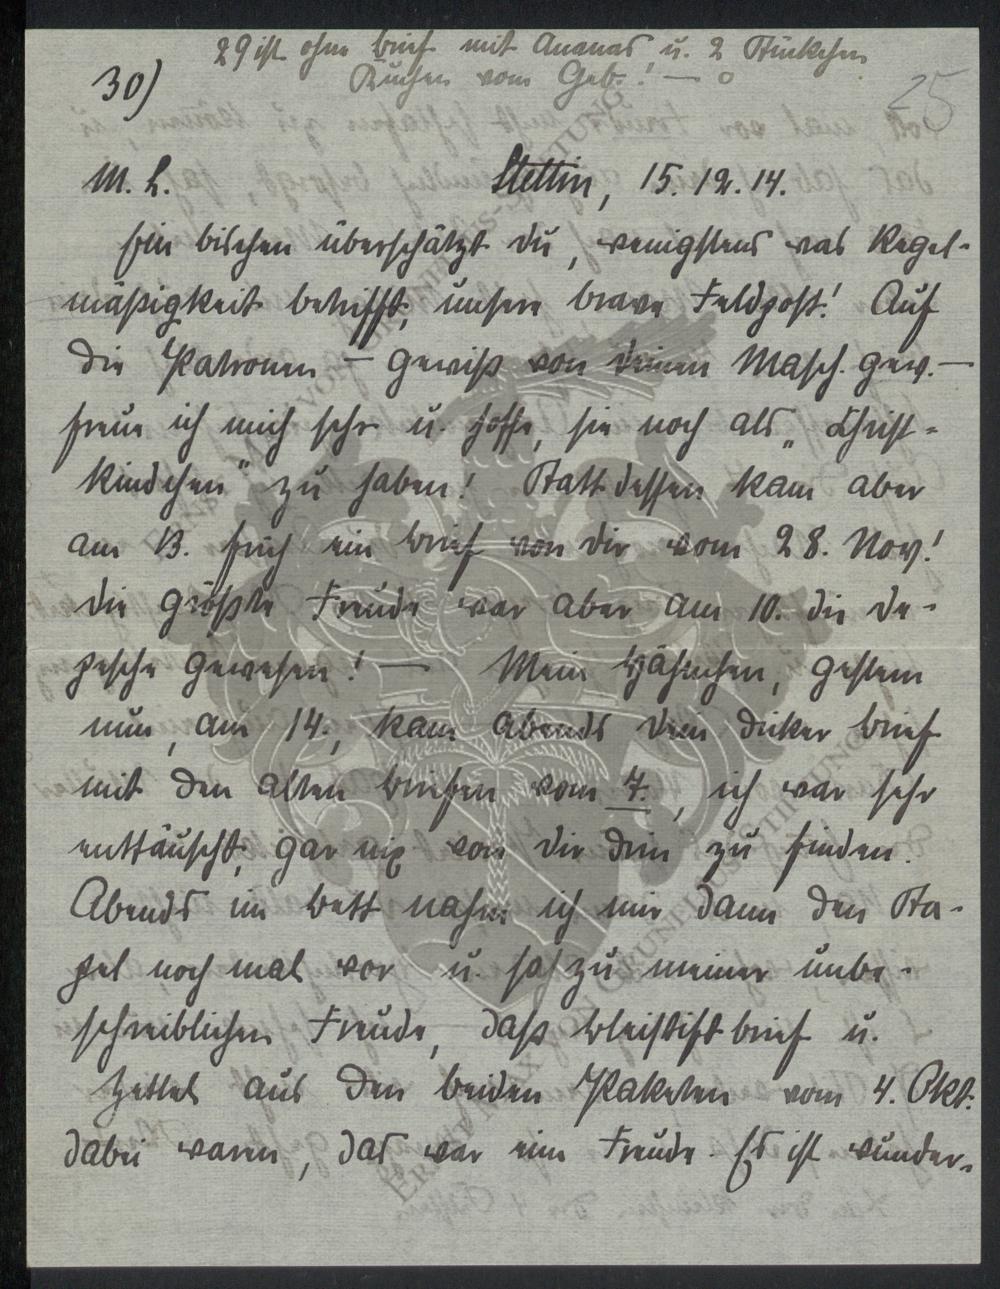 29 ist ohne Brief mit Ananas u. 2 Stückchen
Kuchen vom Geb.! — o
30)
25
M. L. Stettin, 15.12.14.
Ein bischen überschätzt du, wenigstens was Regel-
mäßigkeit betrifft, unsere brave Feldpost! Auf
die Patronen — gewiß von deinem Masch. gew. —
freue ich mich sehr u. hoffe, sie noch als „Christ-
kindchen" zu haben! Statt dessen kam aber
am 13. früh ein Brief von dir vom 28. Nov!
die größte Freude war aber am 10. die De-
pesche gewesen! — Mein Hähnchen, gestern
nun, am 14., kam Abends dein dicker Brief
mit den alten Briefen vom 7., ich war sehr
enttäuscht, gar nix von dir drin zu finden.
Abends im Bett nahm ich mir dann den Sta-
pel noch mal vor u. sah zu meiner unbe-
schreiblichen Freude, daß Bleistiftbrief u.
Zettel aus den beiden Paketen vom 4. Okt.
dabei waren, das war eine Freude. Es ist wunder-